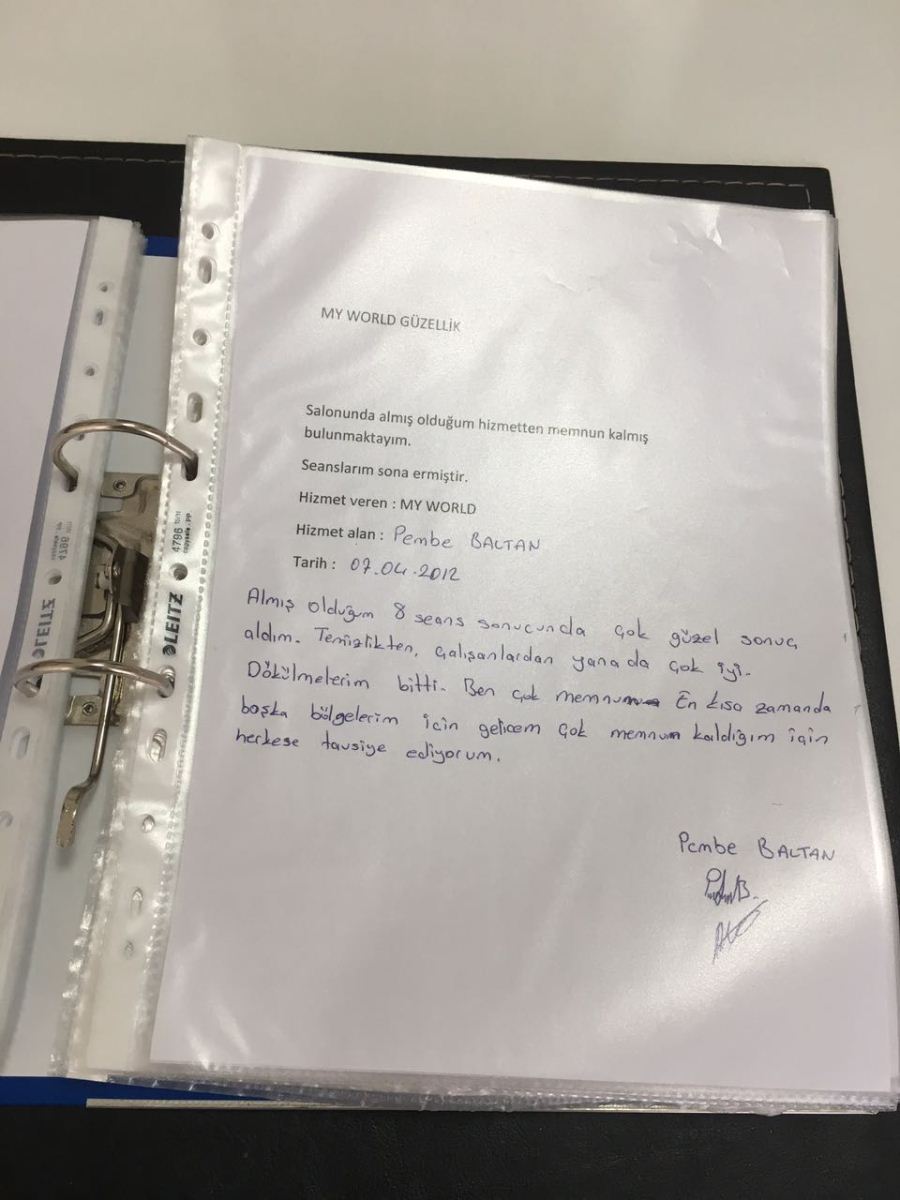 MY WORLD GÜZELLİK
Salonunda almış olduğum hizmetten memnun kalmış
bulunmaktayım.
Seanslarım sona ermiştir.
Hizmet veren : MY WORLD
Hizmet alan : Pembe BALTAN
Tarih : 07.04.2012
Almış olduğum 8 seans sonucunda çok güzel sonuç
aldım. Temizlikten, çalışanlardan yana da çok iyi.
Dökülmelerim bitti. Ben çok memnum En kısa zamanda
başka bölgelerim için gelicem çok memnum kaldığım için
herkese tavsiye ediyorum.
Pembe BALTAN
LEITZ
4796
LEITZ
4796